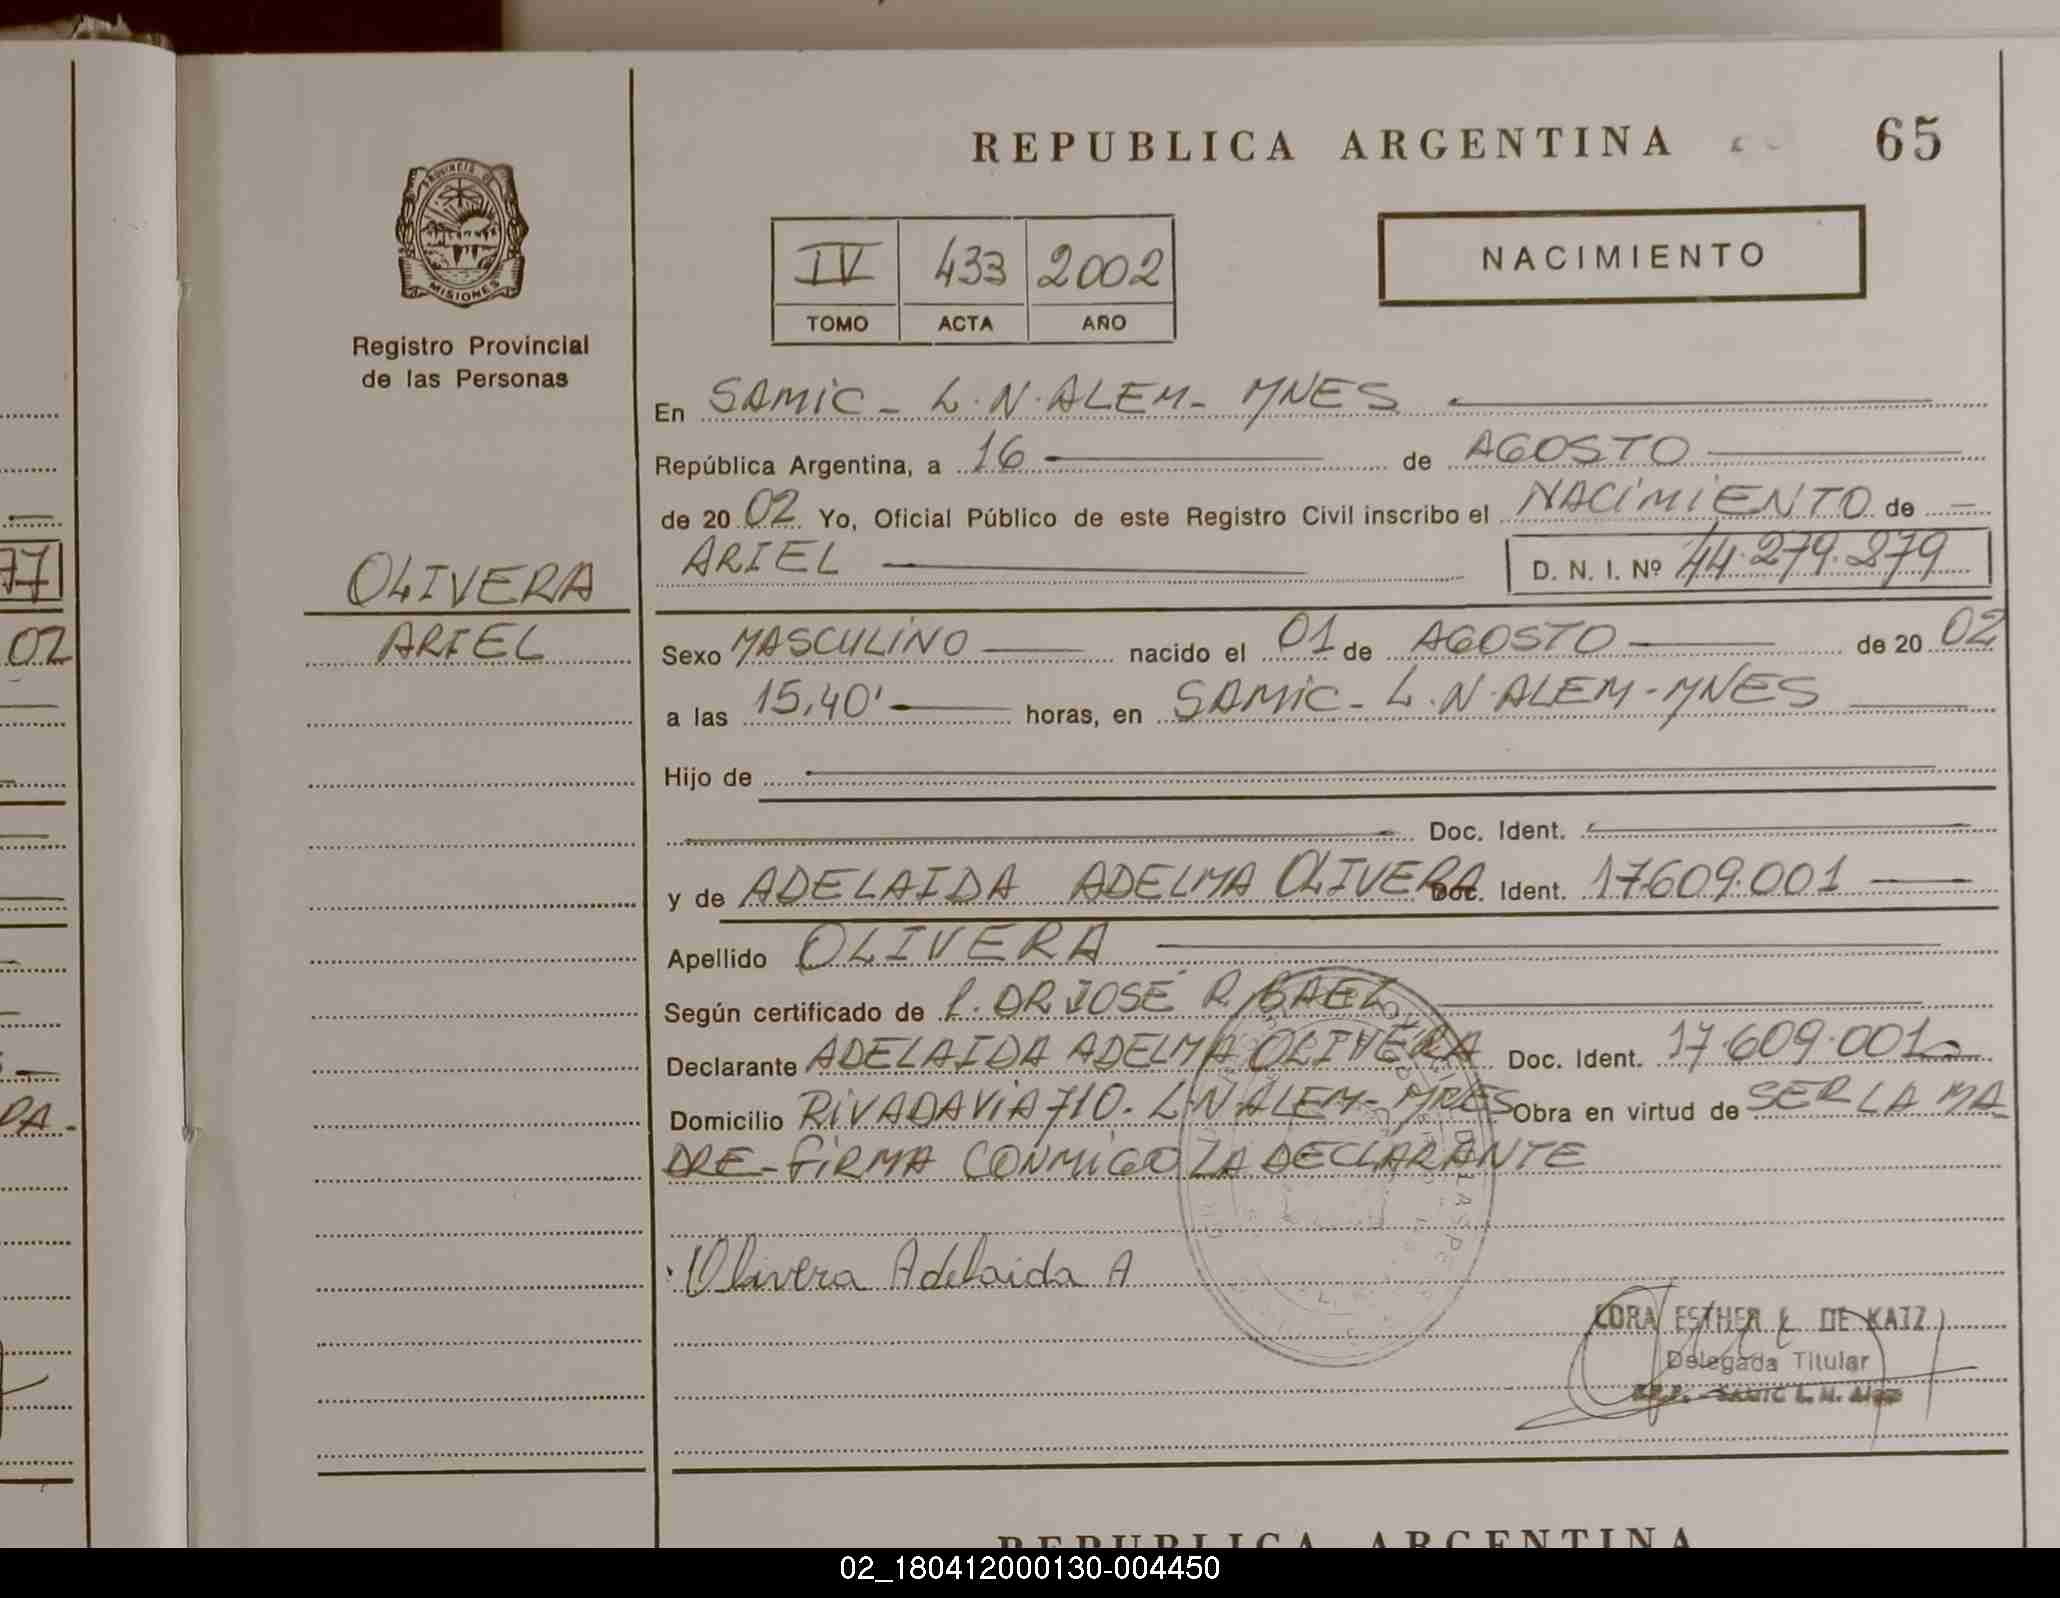 REPUBLICA ARGENTINA 65
PROVINCIA DE
MISIONES
Registro Provincial
de las Personas
IV 433 2002
TOMO ACTA AÑO
NACIMIENTO
En SAMIC - L.N.ALEM - MNES
República Argentina, a 16 de AGOSTO
de 20 02 Yo, Oficial Público de este Registro Civil inscribo el NACIMIENTO de
ARIEL D. N. I. Nº 44.279.879
OLIVERA
ARIEL
Sexo MASCULINO nacido el 01 de AGOSTO de 20 02
a las 15,40' horas, en SAMIC - L.N.ALEM - MNES
Hijo de
Doc. Ident.
y de ADELAIDA ADELMA OLIVERA Doc. Ident. 17.609.001
Apellido OLIVERA
Según certificado de DR JOSÉ R.
Declarante ADELAIDA ADELMA OLIVERA Doc. Ident. 17.609.001
Domicilio RIVADAVIA 710. L.N ALEM - MNES Obra en virtud de SER LA MA
DRE - FIRMA CONMIGO LA DECLARANTE
Olivera Adelaida A
CORA ESTHER L. DE KATZ
Delegada Titular
SAMIC L. N. Alem
REPUBLICA ARGENTINA
77
02
RA.
02_180412000130-004450